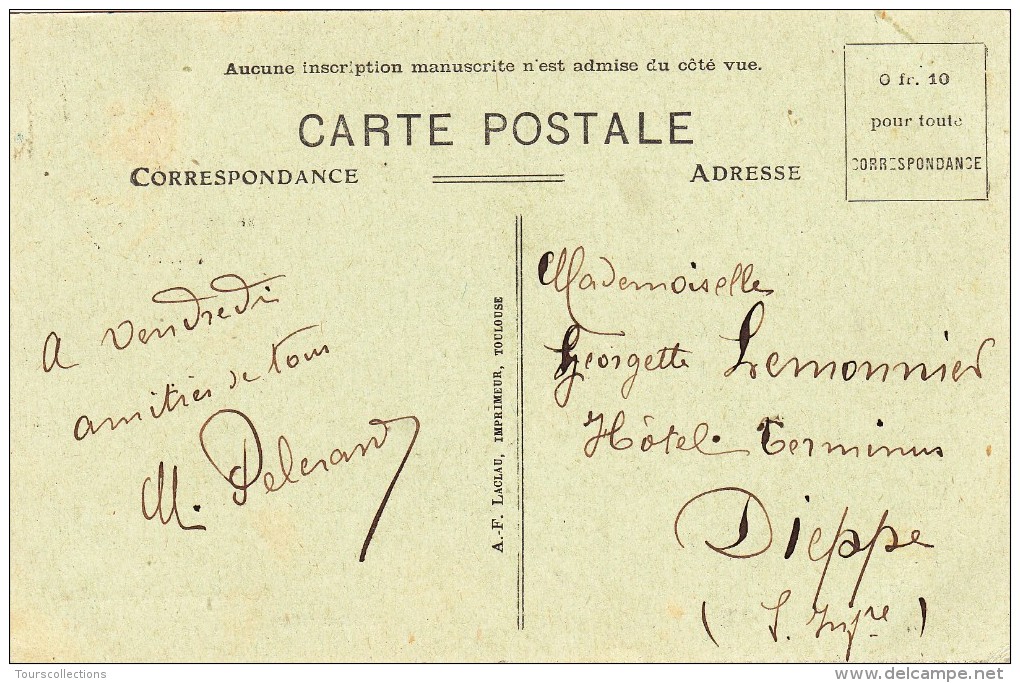 Aucune inscription manuscrite n'est admise du côté vue.
CARTE POSTALE
CORRESPONDANCE
ADRESSE
0 fr. 10
pour toute
CORRESPONDANCE
A Vendredi
amitiés de tous
M.
A.-F. LACLAU, IMPRIMEUR, TOULOUSE
Mademoiselle
Georgette Lemonnier
Hôtel Terminus
Dieppe
(S. Infre)
Tourscollections
delcampe.net